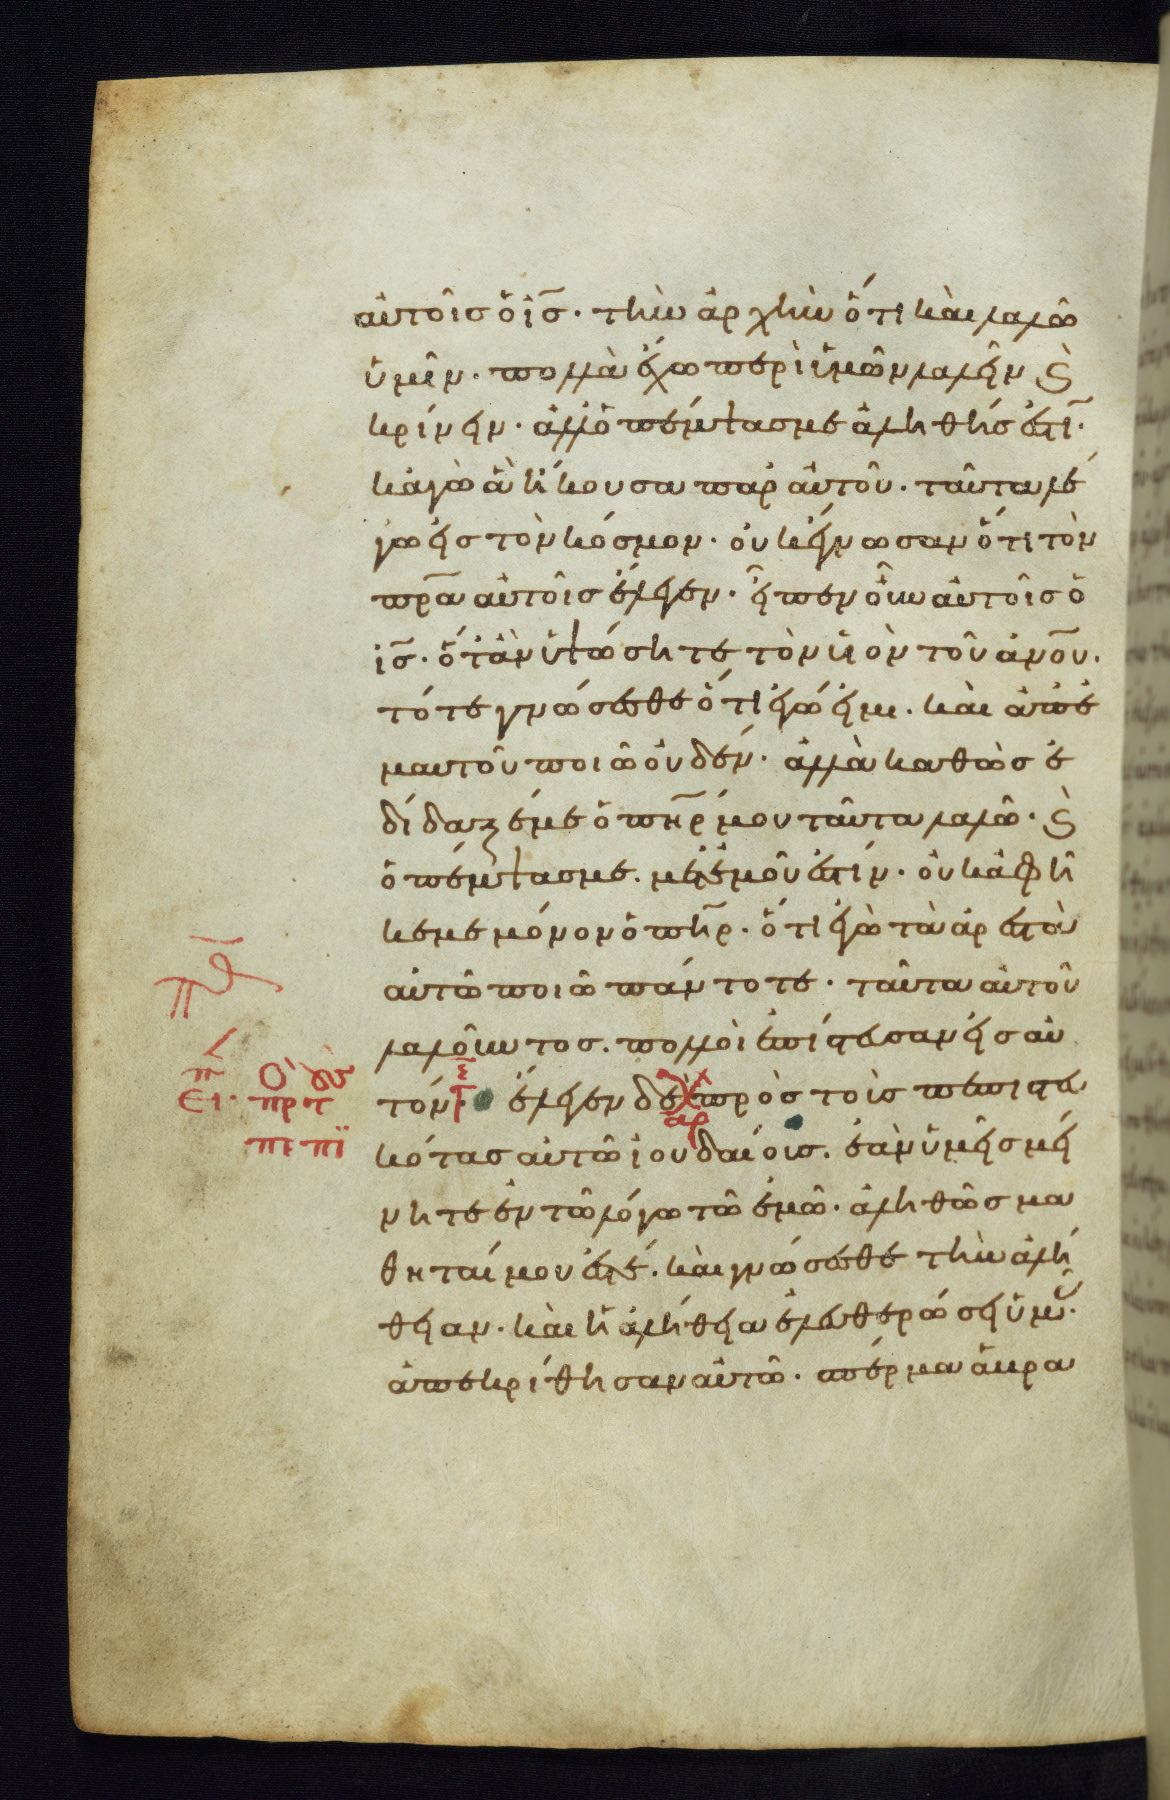 αὐτοῖς ὁ ἰς̅. τὴν ἀρχὴν ὅτι καὶ λαλῶ
ὑμῖν. πολλὰ ἔχω περὶ ὑμῶν λαλεῖν ϗ
κρίνειν. ἀλλ' ὁ πέμψας με ἀληθής ἐστι.
κἀγὼ ἃ ἤκουσα παρ' αὐτοῦ. ταῦτα λέ
γω εἰς τὸν κόσμον. οὐκ ἔγνωσαν ὅτι τὸν
πρ̅α αὐτοῖς ἔλεγεν. εἶπεν οὖν αὐτοῖς ὁ
ἰς̅. ὅταν ὑψώσητε τὸν υἱὸν τοῦ ἀνου̅.
τότε γνώσεσθε ὅτι ἐγώ εἰμι. καὶ ἀπ' ἐ
μαυτοῦ ποιῶ οὐδέν. ἀλλὰ καθὼς ἐ
δίδαξέ με ὁ πη̅ρ μου ταῦτα λαλῶ. ϗ
ὁ πέμψας με. μετ' ἐμοῦ ἐστίν. οὐκ ἀφῆ
κέ με μόνον ὁ πη̅ρ. ὅτι ἐγὼ τὰ ἀρεστὰ
αὐτῶ ποιῶ πάντοτε. ταῦτα αὐτοῦ
λαλοῦντος. πολλοὶ ἐπίστευσαν εἰς αὐ
τόν ἔλεγεν δὲ πρὸς τοὺς πεπιστευ
κότας αὐτῶ ἰουδαίους. ἐὰν ὑμεῖς μεί
νητε ἐν τῶ λόγω τῶ ἐμῶ. ἀληθῶς μα
θηταί μου ἐστέ. καὶ γνώσεσθε τὴν ἀλή
θειαν. καὶ ἡ ἀλήθεια ἐλευθερώσει ὑμᾶς.
ἀπεκρίθησαν αὐτῶ. σπέρμα ἀβρα